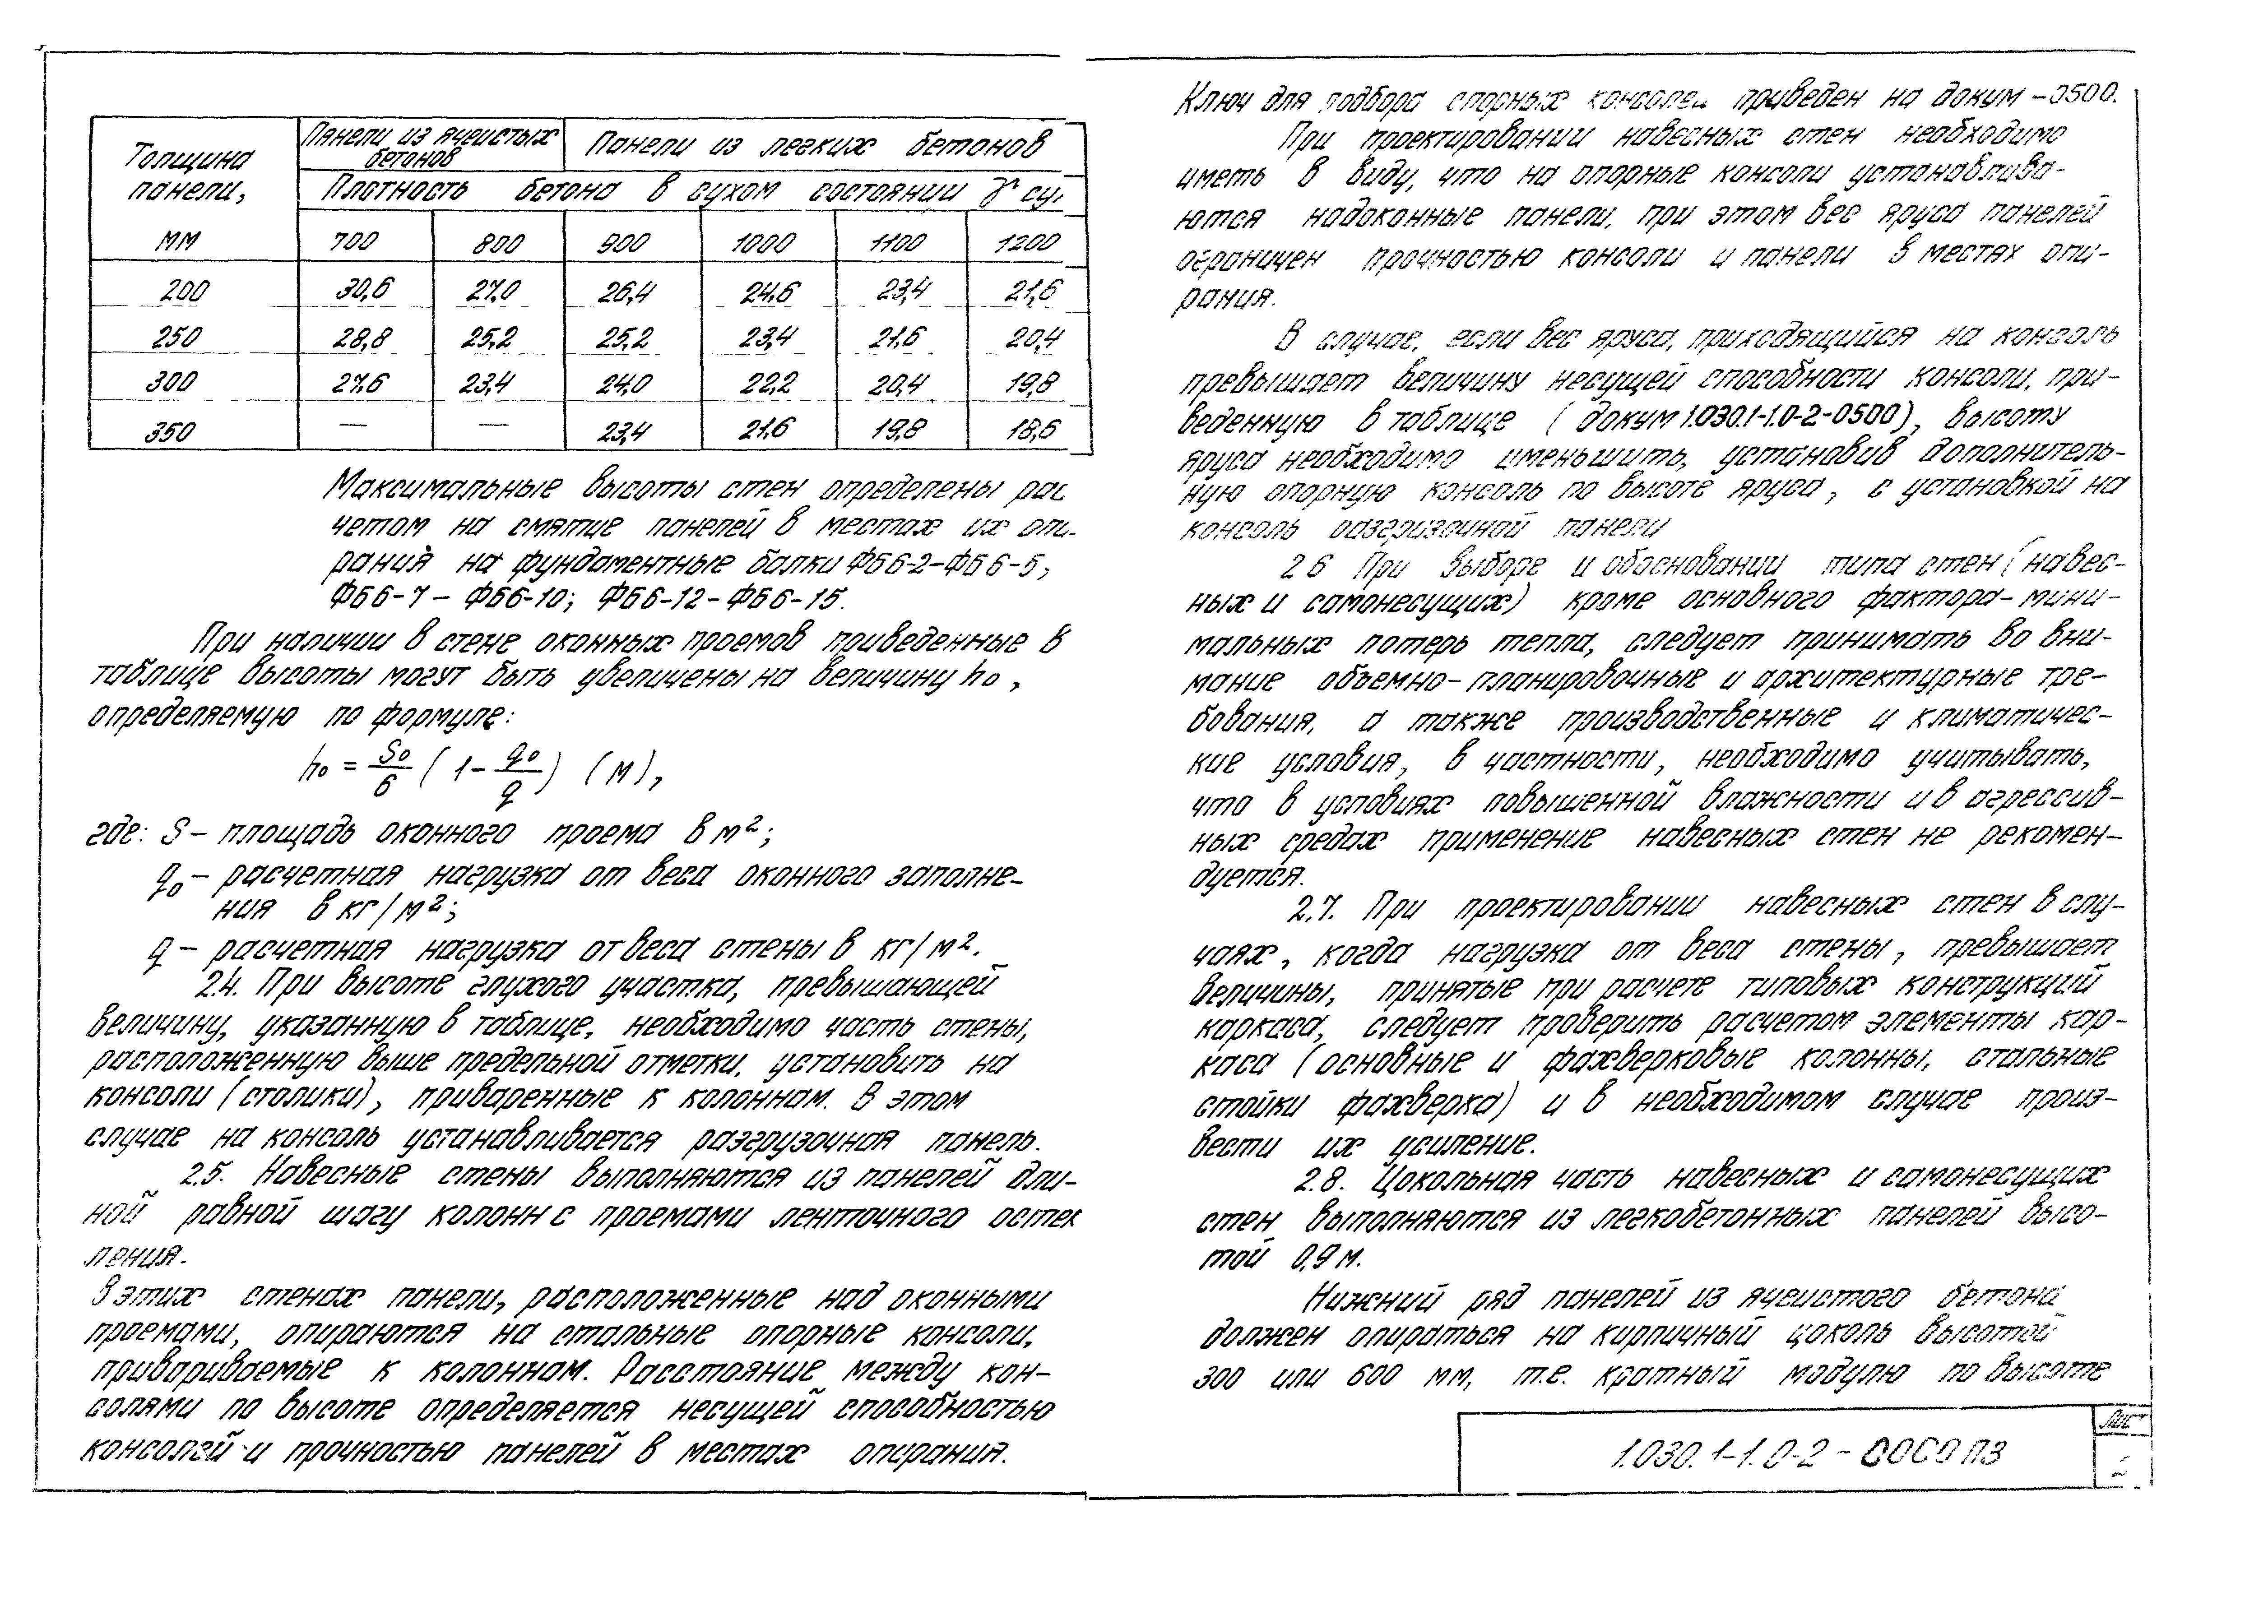 Толщина панели, мм
Панели из ячеистых бетонов
Панели из легких бетонов
Плотность бетона в сухом состоянии γ су
700 800 900 1000 1100 1200
200 30,6 27,0 26,4 24,6 23,4 21,6
250 28,8 25,2 25,2 23,4 21,6 20,4
300 27,6 23,4 24,0 22,2 20,4 19,8
350 — — 23,4 21,6 19,8 18,6
Максимальные высоты стен определены рас
четом на смятие панелей в местах их опи-
рания на фундаментные балки ФБ6-2-ФБ6-5;
ФБ6-7-ФБ6-10; ФБ6-12-ФБ6-15.
При наличии в стене оконных проемов приведенные в
таблице высоты могут быть увеличены на величину h₀,
определяемую по формуле:
h₀ = S₀/6 (1 - q₀/q) (м),
где: S - площадь оконного проема в м²;
q₀ - расчетная нагрузка от веса оконного заполне-
ния в кг/м²;
q - расчетная нагрузка от веса стены в кг/м².
2.4. При высоте глухого участка, превышающей
величину, указанную в таблице, необходимо часть стены,
расположенную выше предельной отметки, установить на
консоли (столики), приваренные к колоннам. В этом
случае на консоль устанавливается разгрузочная панель.
2.5. Навесные стены выполняются из панелей дли-
ной равной шагу колонн с проемами ленточного остек
ления.
В этих стенах панели, расположенные над оконными
проемами, опираются на стальные опорные консоли,
привариваемые к колоннам. Расстояние между кон-
солями по высоте определяется несущей способностью
консолей и прочностью панелей в местах опирания.
Ключ для подбора опорных консолей приведен на докум -0500.
При проектировании навесных стен необходимо
иметь в виду, что на опорные консоли устанавлива-
ются надоконные панели, при этом вес яруса панелей
ограничен прочностью консоли и панели в местах опи-
рания.
В случае, если вес яруса, приходящийся на консоль
превышает величину несущей способности консоли, при-
веденную в таблице (докум 1.030.1-1.0-2-0500), высоту
яруса необходимо уменьшить, установив дополнитель-
ную опорную консоль по высоте яруса, с установкой на
консоль разгрузочной панели
2.6 При выборе и обосновании типа стен (навес-
ных и самонесущих) кроме основного фактора-мини-
мальных потерь тепла, следует принимать во вни-
мание объемно-планировочные и архитектурные тре-
бования, а также производственные и климатичес-
кие условия, в частности, необходимо учитывать,
что в условиях повышенной влажности и в агрессив-
ных средах применение навесных стен не рекомен-
дуется.
2.7. При проектировании навесных стен в слу-
чаях, когда нагрузка от веса стены, превышает
величины, принятые при расчете типовых конструкций
каркаса, следует проверить расчетом элементы кар-
каса (основные и фахверковые колонны, стальные
стойки фахверка) и в необходимом случае произ-
вести их усиление.
2.8. Цокольная часть навесных и самонесущих
стен выполняются из легкобетонных панелей высо-
той 0,9 м.
Нижний ряд панелей из ячеистого бетона
должен опираться на кирпичный цоколь высотой
300 или 600 мм, т.е. кратный модулю по высоте
1.030.1-1.0-2-00СО ПЗ
Лист
2